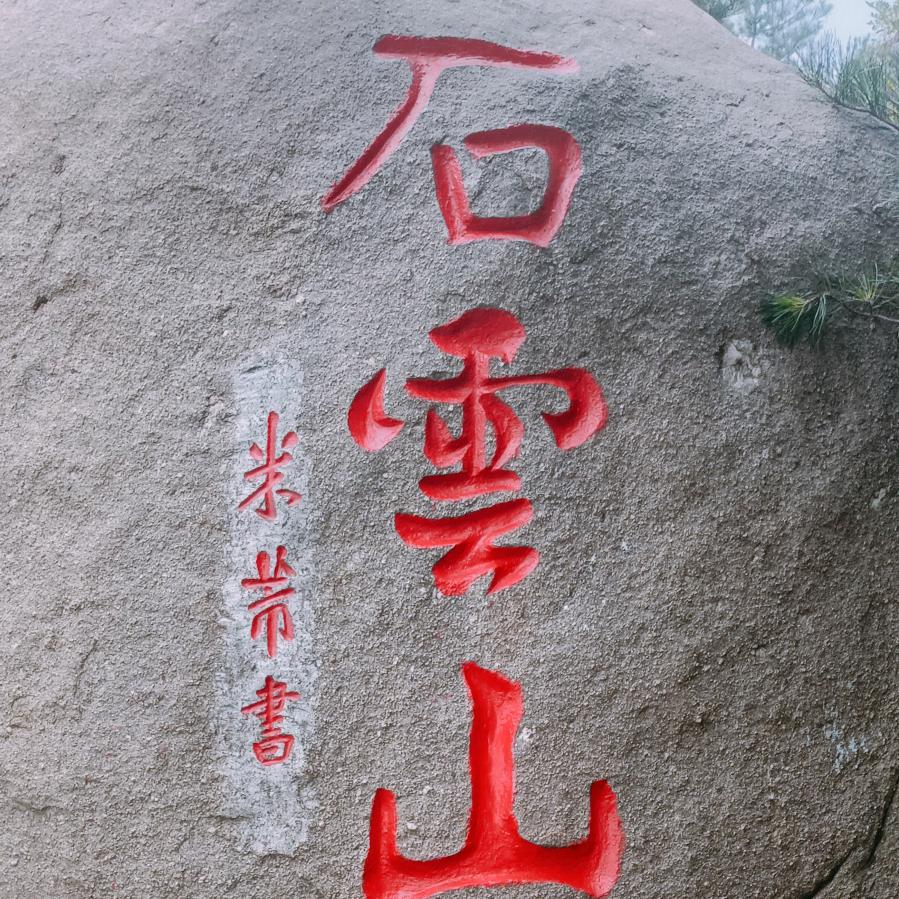 石雲山
米芾書